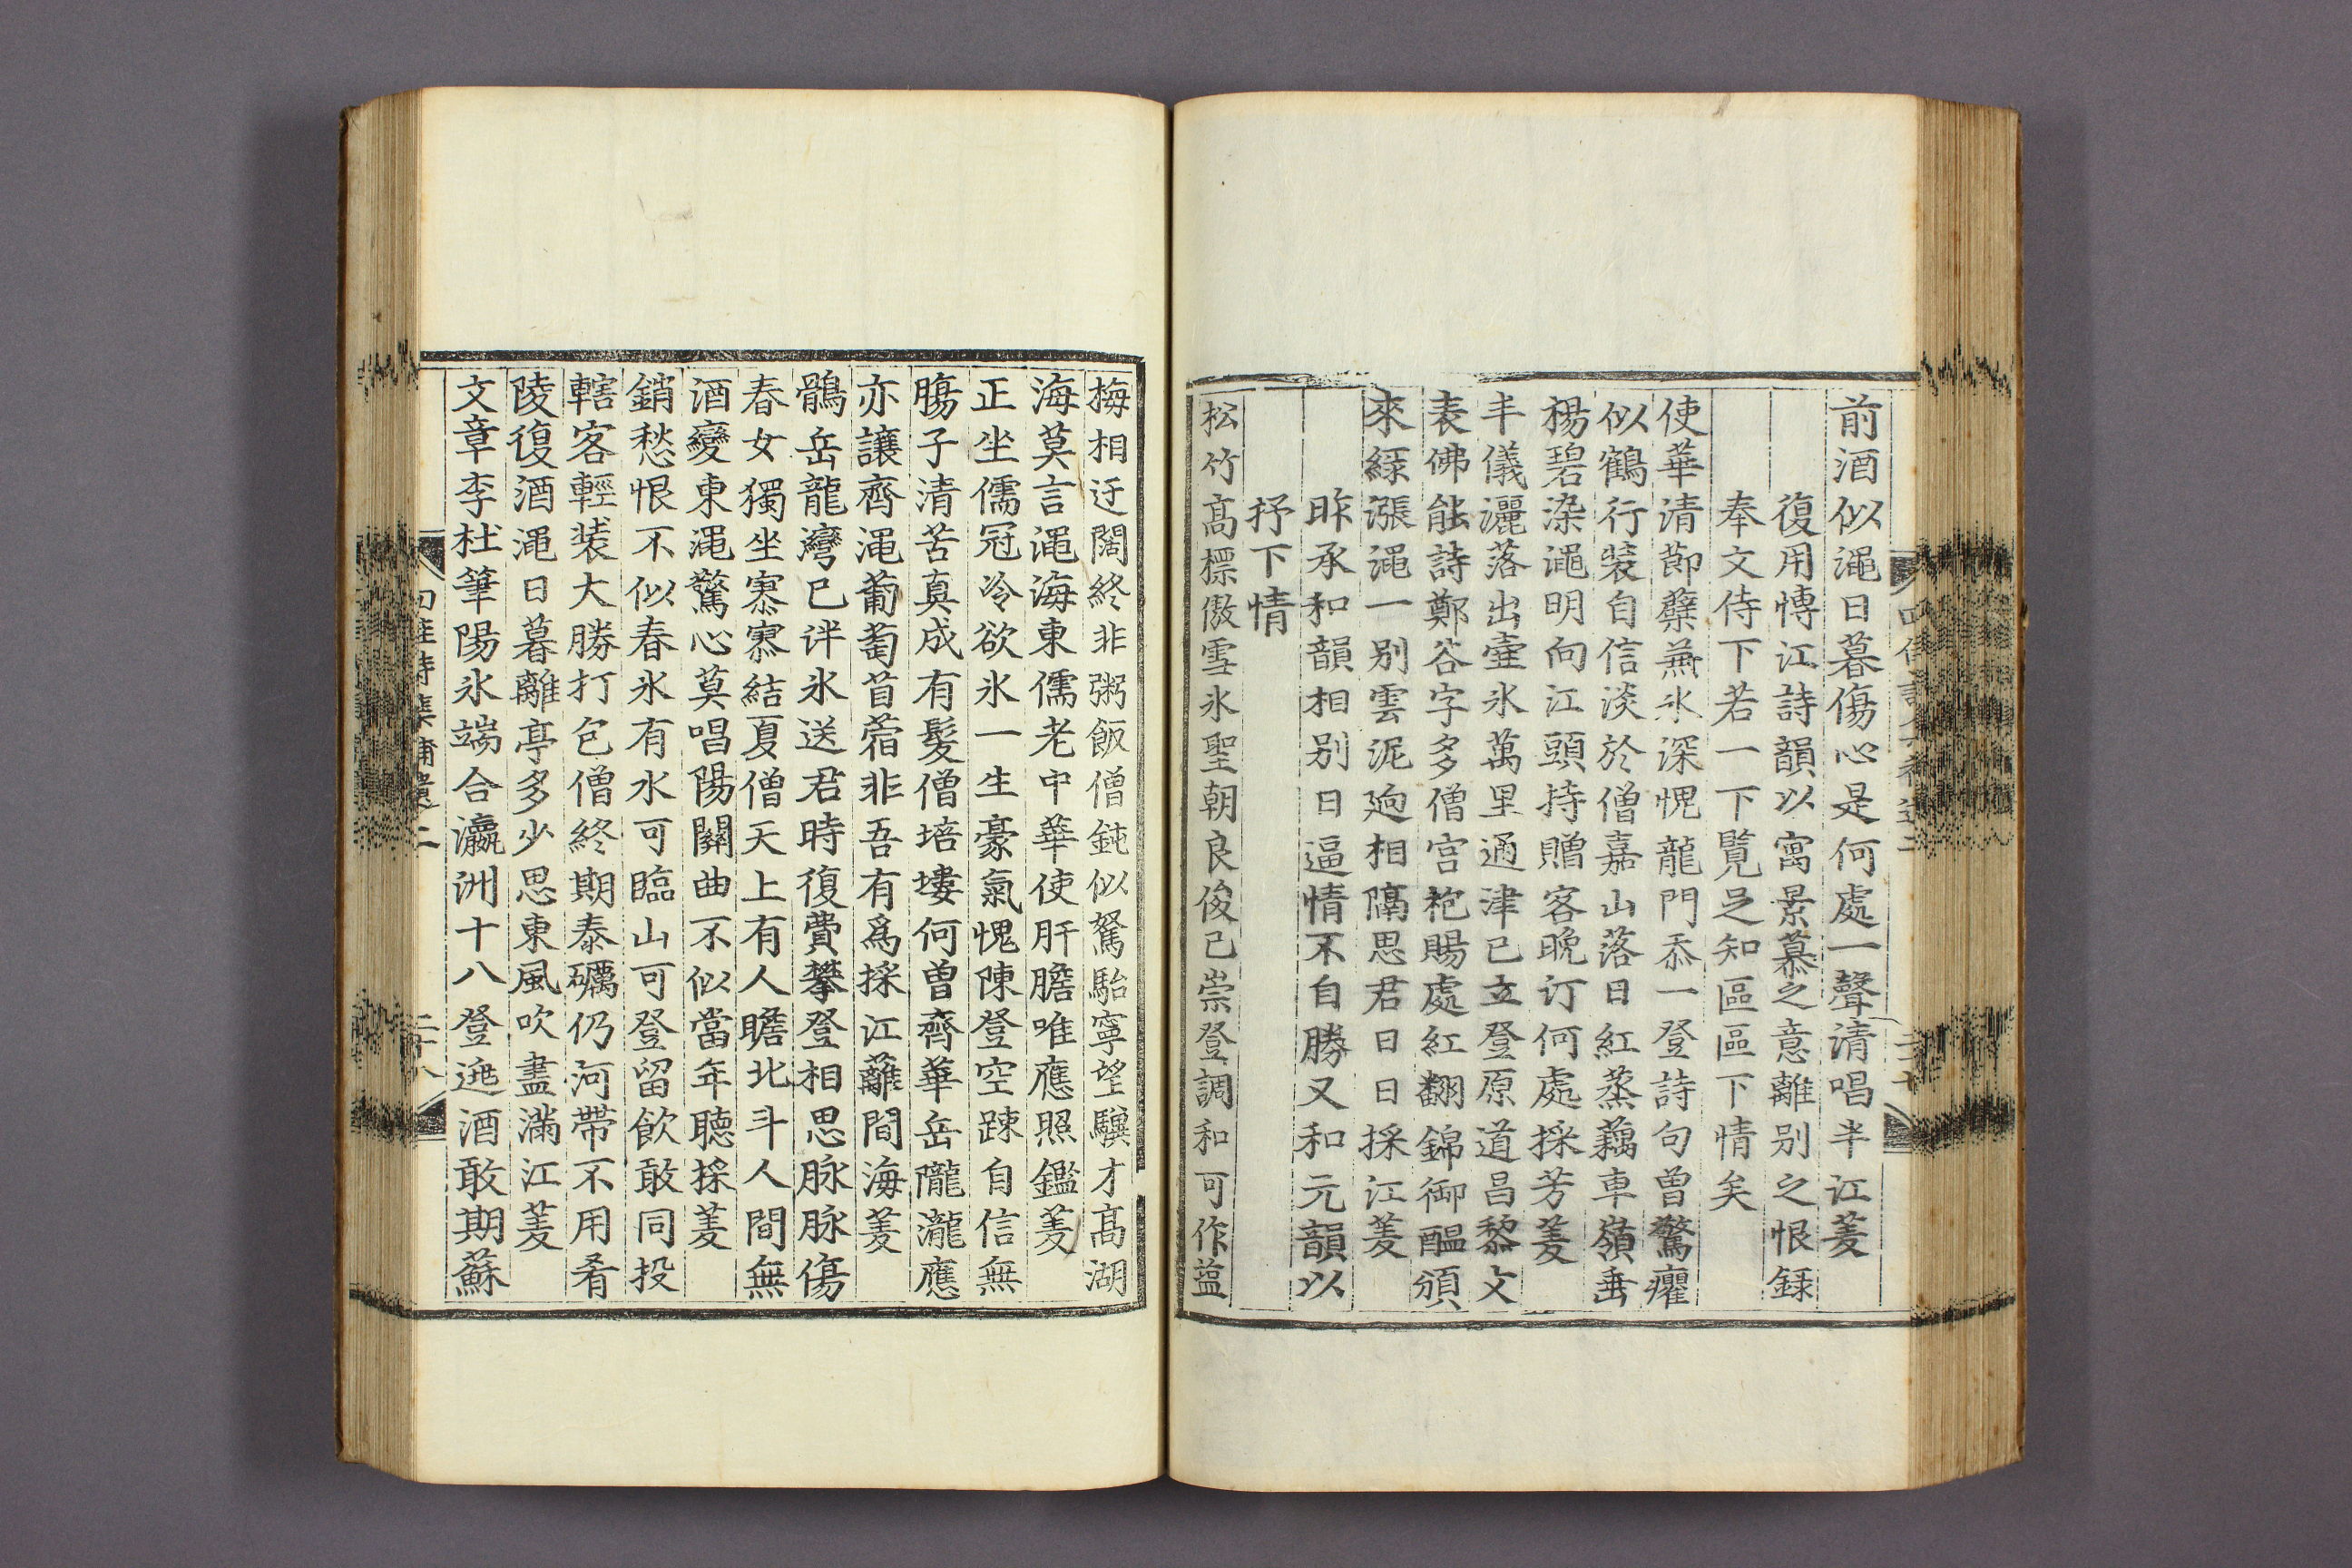 前酒似澠日暮傷心是何處一聲清唱半江菱
復用愽江詩韻以寓景慕之意離别之恨録
奉文侍下若一下覽足知區區下情矣
使華清節蘗兼氷深愧龍門忝一登詩句曾驚癯
似鶴行裝自信淡於僧嘉山落日紅蒸藕車嶺垂
楊碧染澠明向江頭持贈客晩汀何處採芳菱
丰儀灑落出壷氷萬里通津已立登原道昌黎文
表佛能詩鄭谷字多僧宫袍賜處紅翻錦御醖頒
來緑漲澠一别雲泥逈相隔思君日日採江菱
昨承和韻相别日逼情不自勝又和元韻以
抒下情
松竹高標傲雪氷聖朝良俊已崇登調和可作塩
梅相迂闊終非粥飯僧鈍似駑駘寧望驥才高湖
海莫言澠海東儒老中華使肝膽唯應照鑑菱
正坐儒冠冷欲氷一生豪氣愧陳登空踈自信無
膓子清苦真成有髮僧培塿何曾齊華岳隴瀧應
亦讓齊澠葡萄苜蓿非吾有爲採江蘺間海菱
鶻岳龍灣已泮氷送君時復費攀登相思脉脉傷
春女獨坐寡寡結夏僧天上有人瞻北斗人間無
酒變東澠驚心莫唱陽關曲不似當年聽採菱
銷愁恨不似春氷有水可臨山可登留飲敢同投
轄客輕装大勝打包僧終期泰礪仍河帶不用肴
陵復酒澠日暮離亭多少思東風吹盡滿江菱
文章李杜筆陽氷端合瀛洲十八登逃酒敢期蘇
二十八